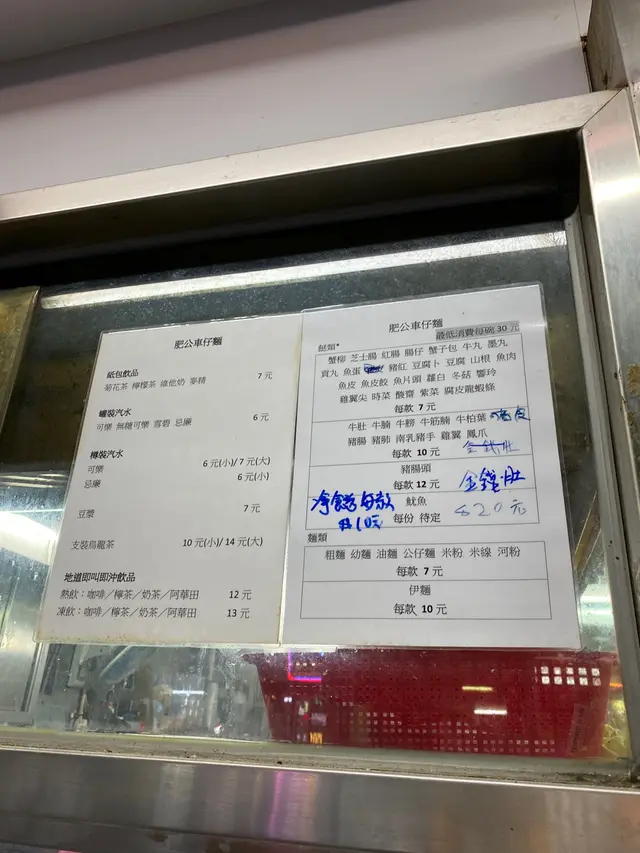 肥公車仔麵
紙包飲品
菊花茶 檸檬茶 維他奶 麥精 7 元
罐裝汽水
可樂 無糖可樂 雪碧 忌廉 6 元
樽裝汽水
可樂 6 元(小)/ 7 元(大)
忌廉 6 元(小)
豆漿 7 元
支裝烏龍茶 10 元(小)/ 14 元(大)
地道即叫即沖飲品
熱飲：咖啡／檸茶／奶茶／阿華田 12 元
凍飲：咖啡／檸茶／奶茶／阿華田 13 元
肥公車仔麵
餸類* 最低消費每碗 30 元
蟹柳 芝士腸 紅腸 腸仔 蟹子包 牛丸 墨丸
貢丸 魚蛋 豬紅 豆腐卜 豆腐 山根 魚肉
魚皮 魚皮餃 魚片頭 蘿白 冬菇 響玲
雞翼尖 時菜 酸齋 紫菜 腐皮龍蝦條
每款 7 元
牛肚 牛腩 牛膀 牛筋腩 牛柏葉 豬皮
豬腸 豬肺 南乳豬手 雞翼 鳳爪
每款 10 元 金錢肚
豬腸頭
每款 12 元 金錢肚
魷魚
每份 待定 $20元
淨食餸每款
$10元
麵類
粗麵 幼麵 油麵 公仔麵 米粉 米線 河粉
每款 7 元
伊麵
每款 10 元